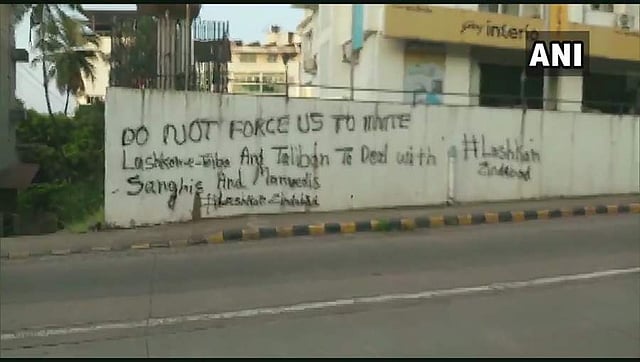 ANI
interio
DO NOT FORCE US TO INVITE
Lashkar-e-Taiba And Taliban To Deal with
Sanghis And Manvedis
#Lashkar Zindabad
#Lashkar
Zindabad